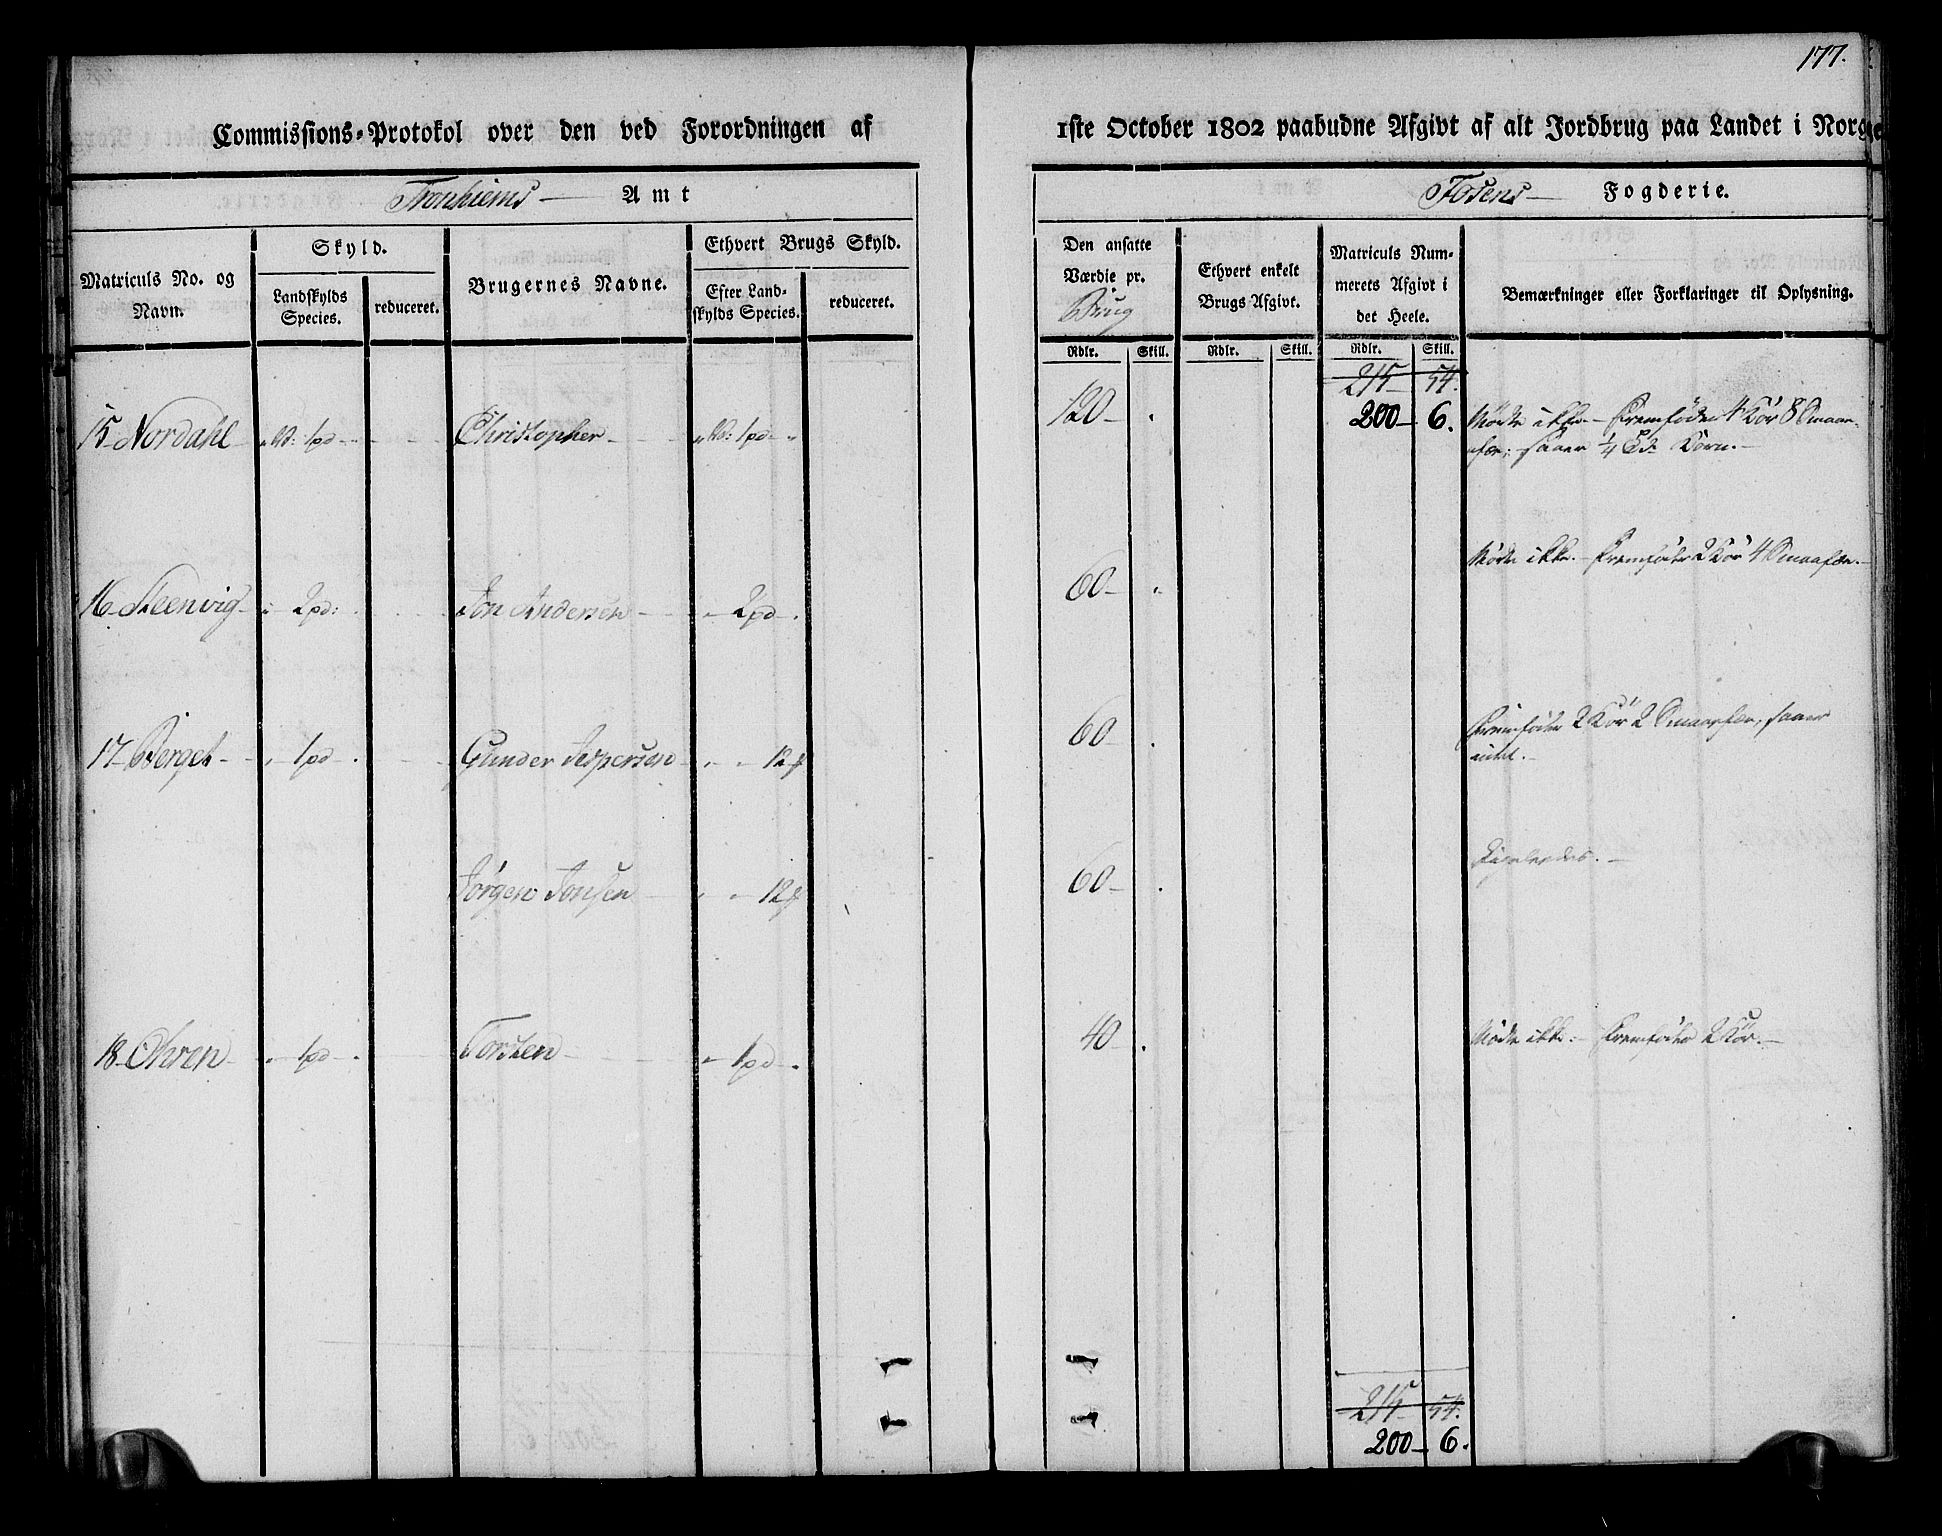 177.
Commissions-Protokol over den ved Forordningen af 1ste October 1802 paabudne Afgivt af alt Jordbrug paa Landet i Norge
Tronhiems Amt
Fosens Fogderie.
Matriculs No. og Navn.
Skyld.
Landskylds Species.
reduceret.
Brugernes Navne.
Ethvert Brugs Skyld.
Efter Landskylds Species.
reduceret.
Den ansatte Værdie pr. Brug
Ethvert enkelt Brugs Afgivt.
Matriculs Nummerets Afgivt i det Heele.
Bemærkninger eller Forklaringer til Oplysning.
Rdlr. Skill. Rdlr. Skill. Rdlr. Skill.
215 54.
200 6.
15 Nordahl 1pd Christopher 1pd 120 Mødte ikke. Fremføder 4 Kör 8 Smaafæ; saaer 1/4 Korn.
16 Steenvig 2pd: Jon Andersen 2pd 60 Mødte ikke. Fremføder 2 Kör 4 Smaafæ.
17 Berget 1pd Gunder Jespersen 12 60 Fremføder 2 Kör 2 Smaafæ, saaer intet.
Jørgen Jonsen 12 60 Ligeledes.
18 Ohren 1pd Torsten 1pd 40 Mødte ikke. Fremføder 2 Kör.
215 54.
200 6.